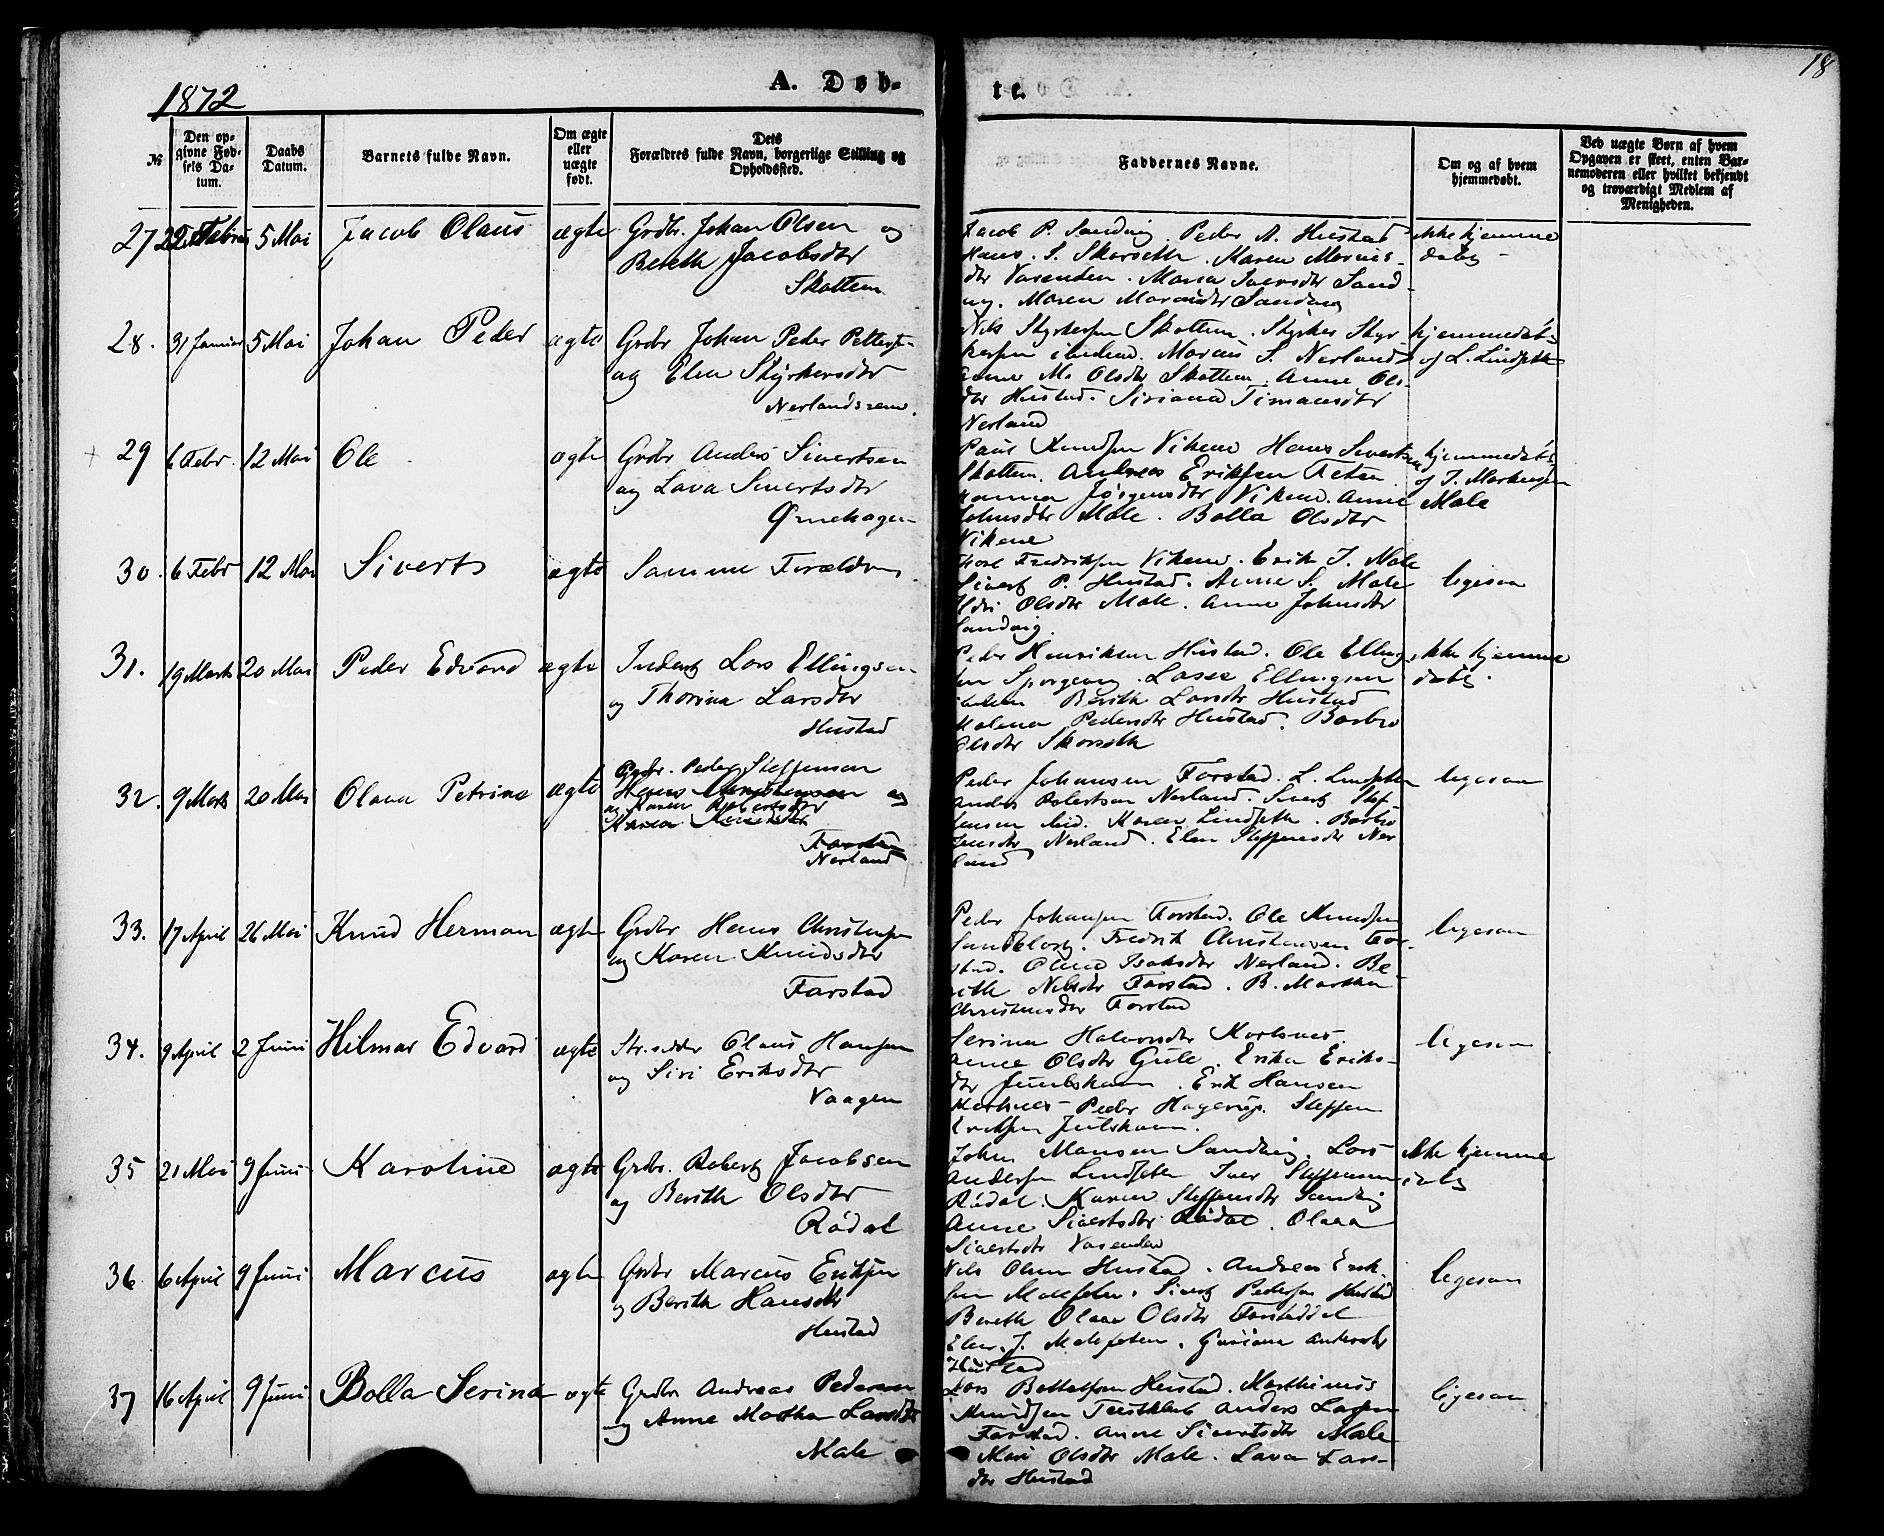 1872
A. Døb-
te.
18
№
Den op-
givne Fød-
sels Da-
tum.
Daabs
Datum.
Barnets fulde Navn.
Om ægte
eller
uægte
født.
Dets
Forældres fulde Navn, borgerlige Stilling og
Opholdssted.
Faddernes Navne.
Om og af hvem
hjemmedøbt.
Ved uægte Børn af hvem
Opgaven er skeet, enten Bar-
nemoderen eller hvilket bekjendt
og troværdigt Medlem af
Menigheden.
27 5 Mai Jacob Olaus ægte Grdbr. Johan Olsen og
Bereth Jacobsdtr
Skottem
Jacob P. Sandvig Peder A. Hustad
Hans. S. Skarseth. Karen
dtr Vasenden. Maria Iversdtr Sand-
vig. Maren Sandvig
ikke hjemme
døbt
28. 31 Januar 5 Mai Johan Peder ægte Grdbr Johan Peder Petters-
og Elen Styrkersdtr
Nerlandsrem.
Nils Styrkersen Skottem. Styrker Styr-
kersen Marcus S. Nerland
Anne M. Olsdtr Skottem. Anne Ols-
dtr Hustad. Siriana Timansdtr
Nerland
hjemmedøbt
af L. Lindseth
29 6 Febr. 12 Mai Ole ægte Grdbr Anders Sivertsen
og Lava Sivertsdtr
Ørnehagen
Paul Knudsen Vikene Hans Sivertsen
Skottem. Andreas Eriksen Teten
Hanna Jørgensdtr Vikene. Anne
Johnsdtr Male. Bolla Olsdtr
Vikene
hjemmedøbt
af
Male
30. 6 Febr 12 Mai Sivert ægte Samme Forældre
Fredriksen Vikene. Erik J. Male
Sivert P. Hustad. Anne S. Male
Olsdtr Male. Anne Johnsdtr
Sandvig.
ligesaa
31. 19 Marts 20 Mai Peder Edvard ægte Inderst Lars Ellingsen
og Thorina Larsdtr
Hustad
Peder Henriksen Hustad. Ole Elling-
sen Lasse Ellingsen
Berith Larsdtr Hustad
Malena Pedersdtr Hustad. Barbro
Olsdtr Skarseth
ikke hjemme
døbt.
32. 9 Marts 20 Mai Olava Petrine ægte Grdbr. Peder Steffensen
Hans Christensen og
og Karen Robertsdtr
Karen Knudsdtr
Farstad
Nerland
Peder Johansen Farstad. L. Lindseth
Anders Robertsen Nerland. Sivert Stef-
fensen ibid. Karen Lindseth. Barbro
Jensdtr Nerland. Elen Steffensdtr Ner
land
ligesaa
33. 17 April 26 Mai Knud Herman ægte Grdbr Hans Christensen
og Karen Knudsdtr
Farstad
Peder Johansen Farstad. Ole Knudsen
Sandblost. Fredrik Christensen Far-
stad. Oline Isaksdtr Nerland. Be-
rith Nilsdtr Farstad. B. Martha
Christensdtr Farstad
ligesaa
34. 9 April 2 Juni Hilmar Edvard ægte Str.sidder Olaus Hansen
og Siri Eriksdtr
Vaagen
Serina Halvorsdtr Korsnes.
Anne Olsdtr Gule. Erika Eriks-
dtr Julshavn. Erik Hansen
Korsnes - Peder Hagerup. Steffen
Eriksen Julshavn.
ligesaa
35 21 Mai 9 Juni Karoline ægte Grdbr. Robert Jacobsen
og Berith Olsdtr
Rødal
Johan Monsen Sandvig. Lars
Andersen Lindseth Iver Steffensen
Rødal. Karen Steffensdtr Sandvig
Anne Sivertsdtr Rødal. Olava
Sivertsdtr Vasenden
ikke hjemme
døbt
36 6 April 9 Juni Marcus ægte Grdbr Marcus Eriksen
og Berith Hansdtr
Hustad
Nils Olsen Hustad. Andreas Erik-
sen Malefeten. Sivert Pedersen Hustad
Bereth Olava Olsdtr
Elen. J. Malefeten. Andersdtr
Hustad
ligesaa
37 16 April 9 Juni Bolla Serina ægte Grdbr Andreas Pedersen
og Anne Martha Larsdtr
Male
Lars Hustad. Marthinus
Knudsen Anders Larsen
Farstad. Anne Sivertsdtr Male
Mari Olsdtr Male. Lava Lars-
dtr Hustad
ligesaa